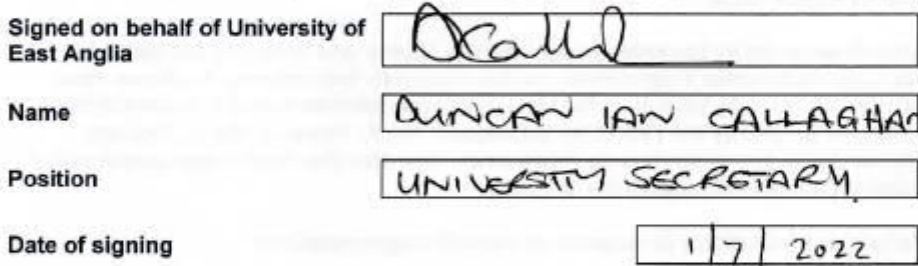 Signed on behalf of University of
East Anglia
Name DUNCAN IAN CALLAGHAN
Position UNIVERSITY SECRETARY
Date of signing 1/7/2022